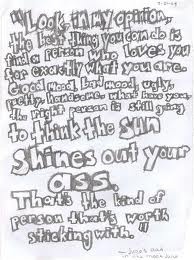 7-21-09
"Look, in my opinion,
the best thing you can do is
find a person who loves you
for exactly what you are.
Good mood, bad mood, ugly,
pretty, handsome, what have you,
the right person is still going
to think the sun
shines out your
ass.
That's the kind of
person that's worth
sticking with."
- Juno's dad
in the movie Juno